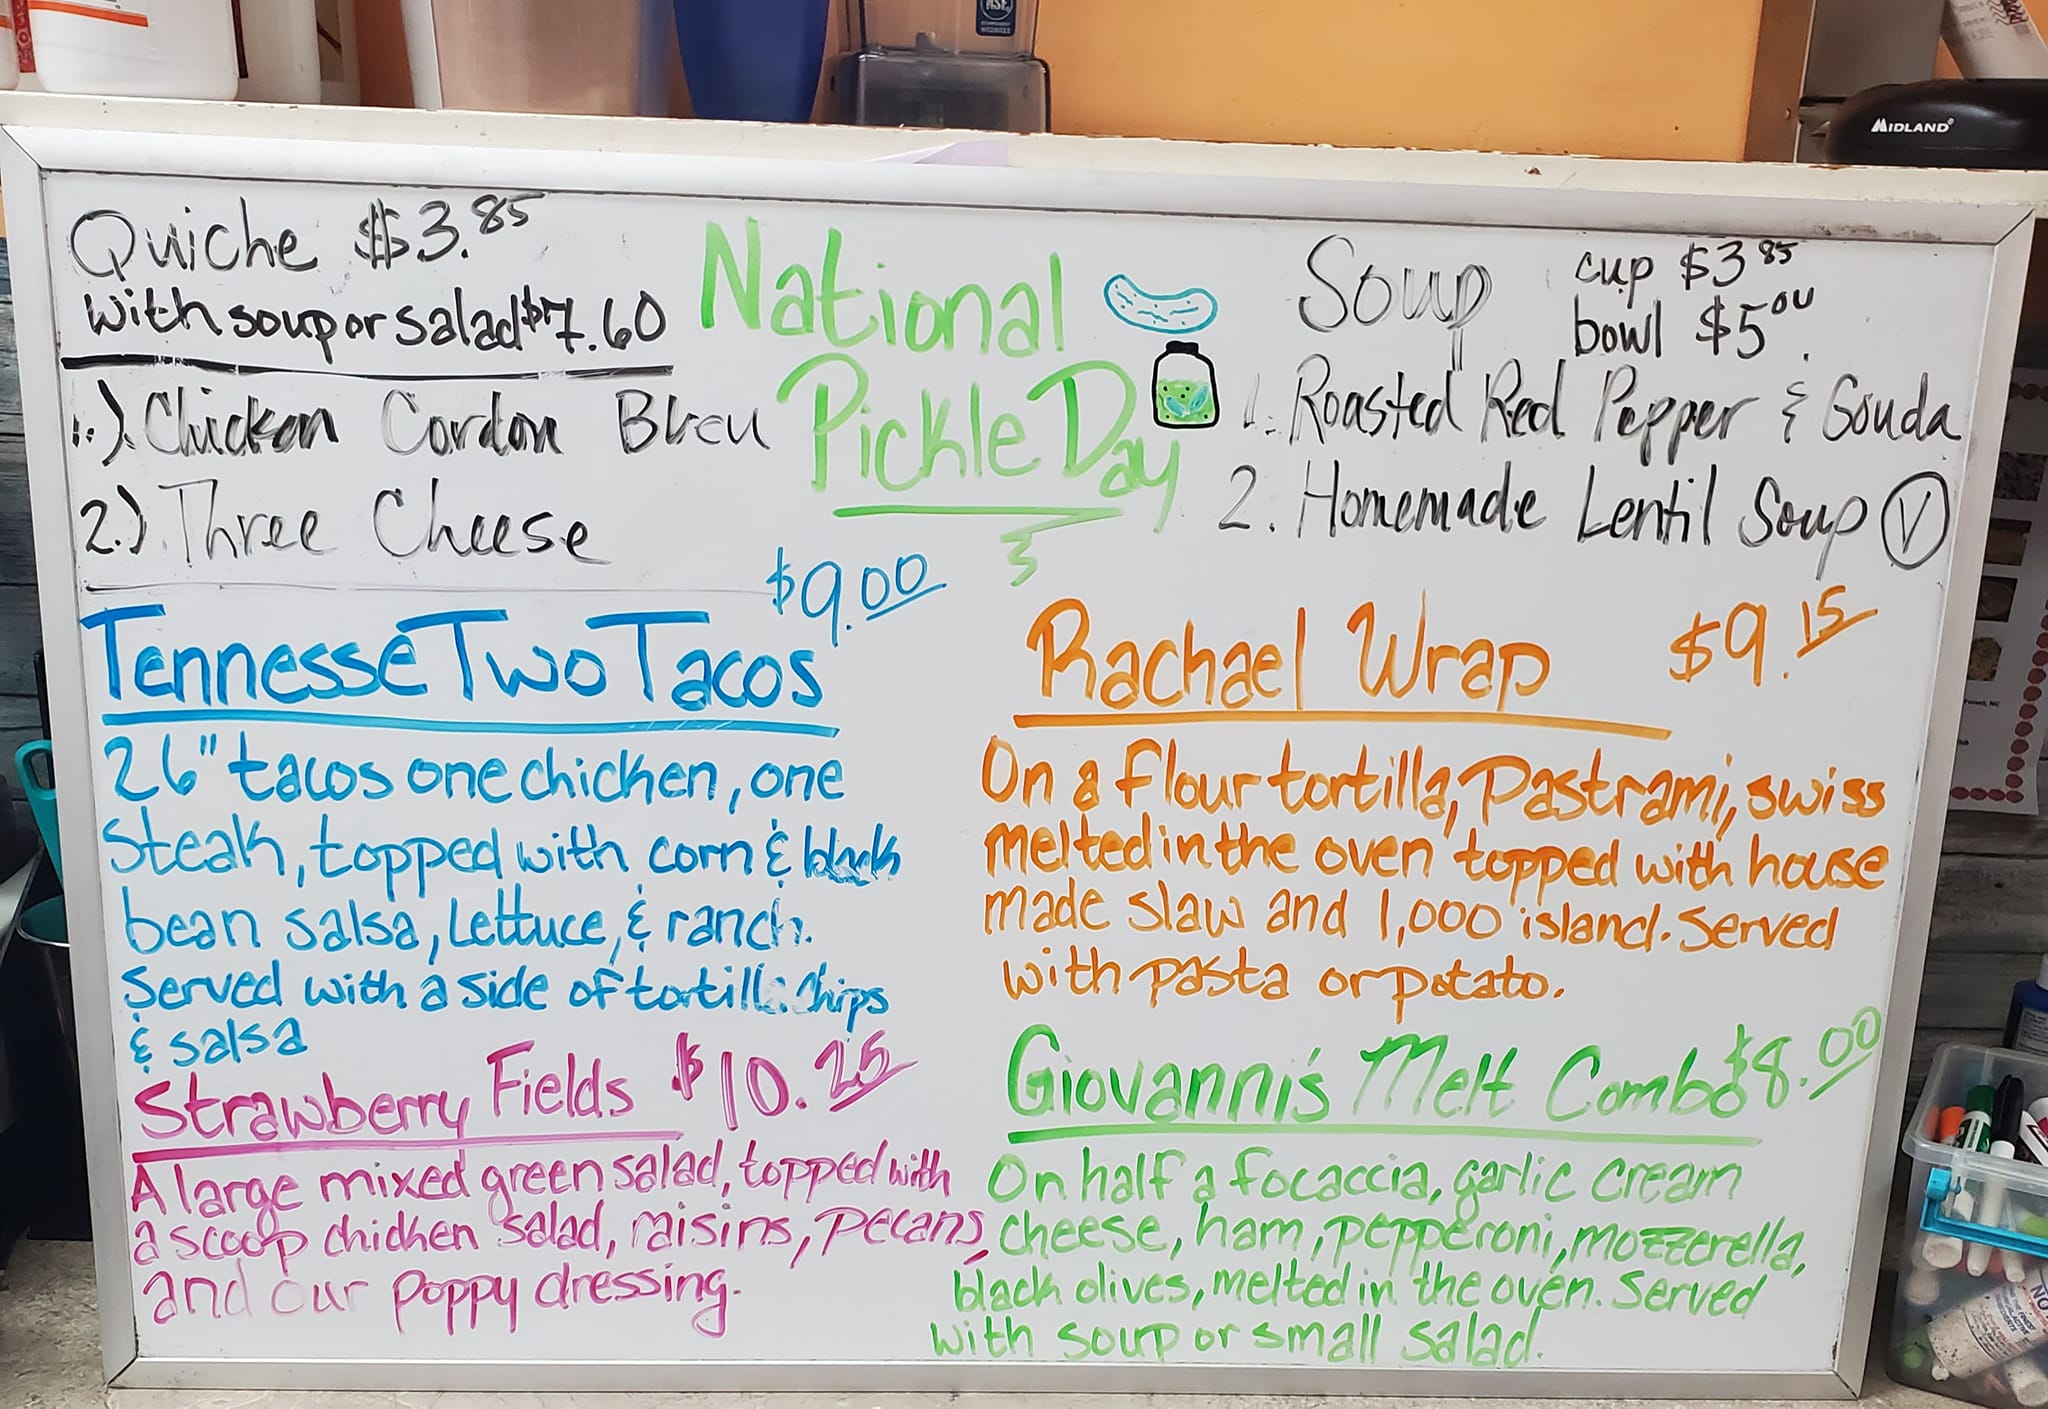 MIDLAND®
NSF
Quiche $3.85
with soup or salad $7.60
1.) Chicken Cordon Bleu
2.) Three Cheese
National
Pickle Day
Soup
cup $3 85
bowl $5 00
1. Roasted Red Pepper & Gouda
2. Homemade Lentil Soup V
$9.00
Tennesse Two Tacos
2 6" tacos one chicken, one
steak, topped with corn & black
bean salsa, Lettuce, & ranch.
Served with a side of tortilla chips
& salsa
Rachael Wrap $9.15
On a flour tortilla, Pastrami, swiss
melted in the oven topped with house
made slaw and 1,000 island. Served
with pasta or potato.
Strawberry Fields $10.25
A large mixed green salad, topped with
a scoop chicken salad, raisins, pecans,
and our poppy dressing.
Giovanni's Melt Combo $8.00
On half a focaccia, garlic cream
cheese, ham, pepperoni, mozzerella,
black olives, melted in the oven. Served
with soup or small salad.